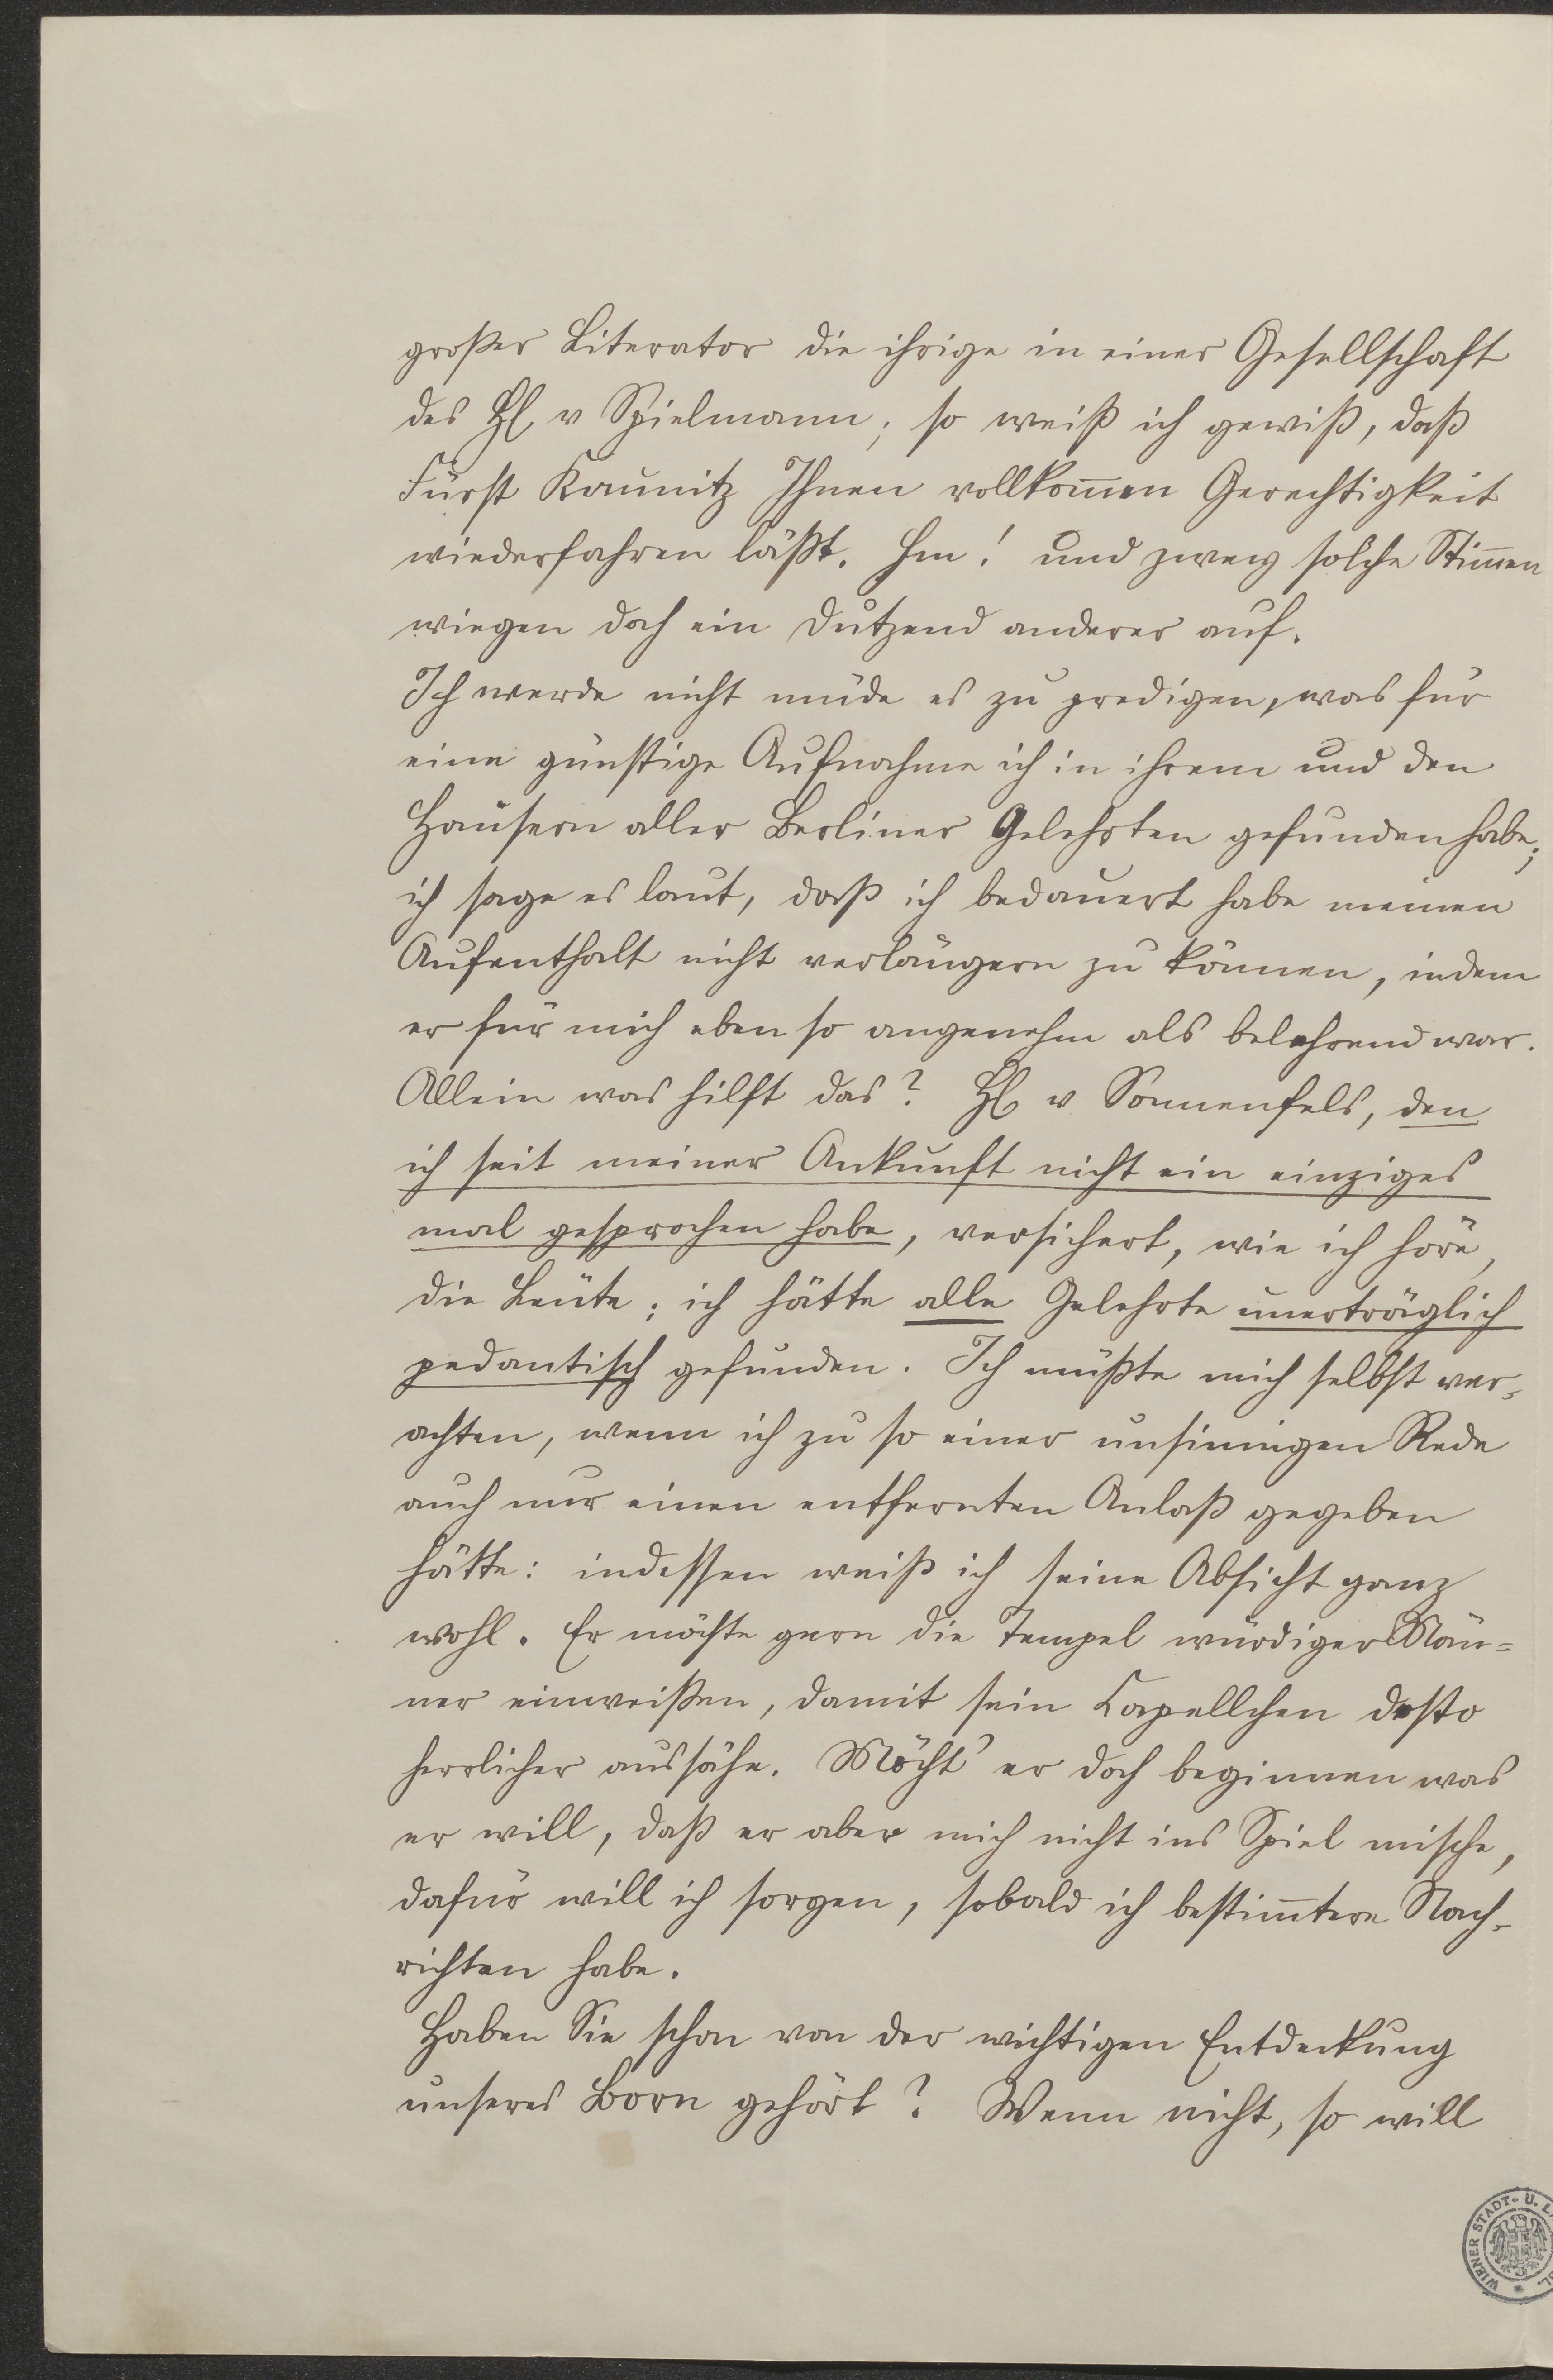 großer Literator die ihrige in einer Gesellschaft
des H v Spielmann; so weiß ich gewiß, daß
Fürst Kaunitz Ihnen vollkom̅en Gerechtigkeit
wiederfahren läßt. Hm! und zwey solche Stim̅en
wiegen doch ein Dutzend anderer auf.
Ich werde nicht müde es zu predigen, was für
eine günstige Aufnahme ich in ihrem und den
Häusern aller Berliner Gelehrten gefunden habe;
ich sage es laut, daß ich bedauert habe meinen
Aufenthalt nicht verlängern zu können, indem
er für mich eben so angenehm als belehrend war.
Allein was hilft das? H v Sonnenfels, den
ich seit meiner Ankunft nicht ein einziges
mal gesprochen habe, versichert, wie ich höre,
die Leute; ich hätte alle Gelehrte unerträglich
pedantisch gefunden. Ich müßte mich selbst ver-
achten, wenn ich zu so einer unsinnigen Rede
auch nur einen entfernten Anlaß gegeben
hätte: indessen weiß ich seine Absicht ganz
wohl. Er möchte gern die Tempel würdiger Män=
ner einreißen, damit sein Capellchen desto
herrlicher aussähe. Möcht' er doch beginnen was
er will, daß er aber mich nicht ins Spiel mische,
dafür will ich sorgen, sobald ich bestim̅tere Nach-
richten habe.
Haben Sie schon von der wichtigen Entdeckung
unseres Born gehört? Wenn nicht, so will
WIENER STADT- U. L